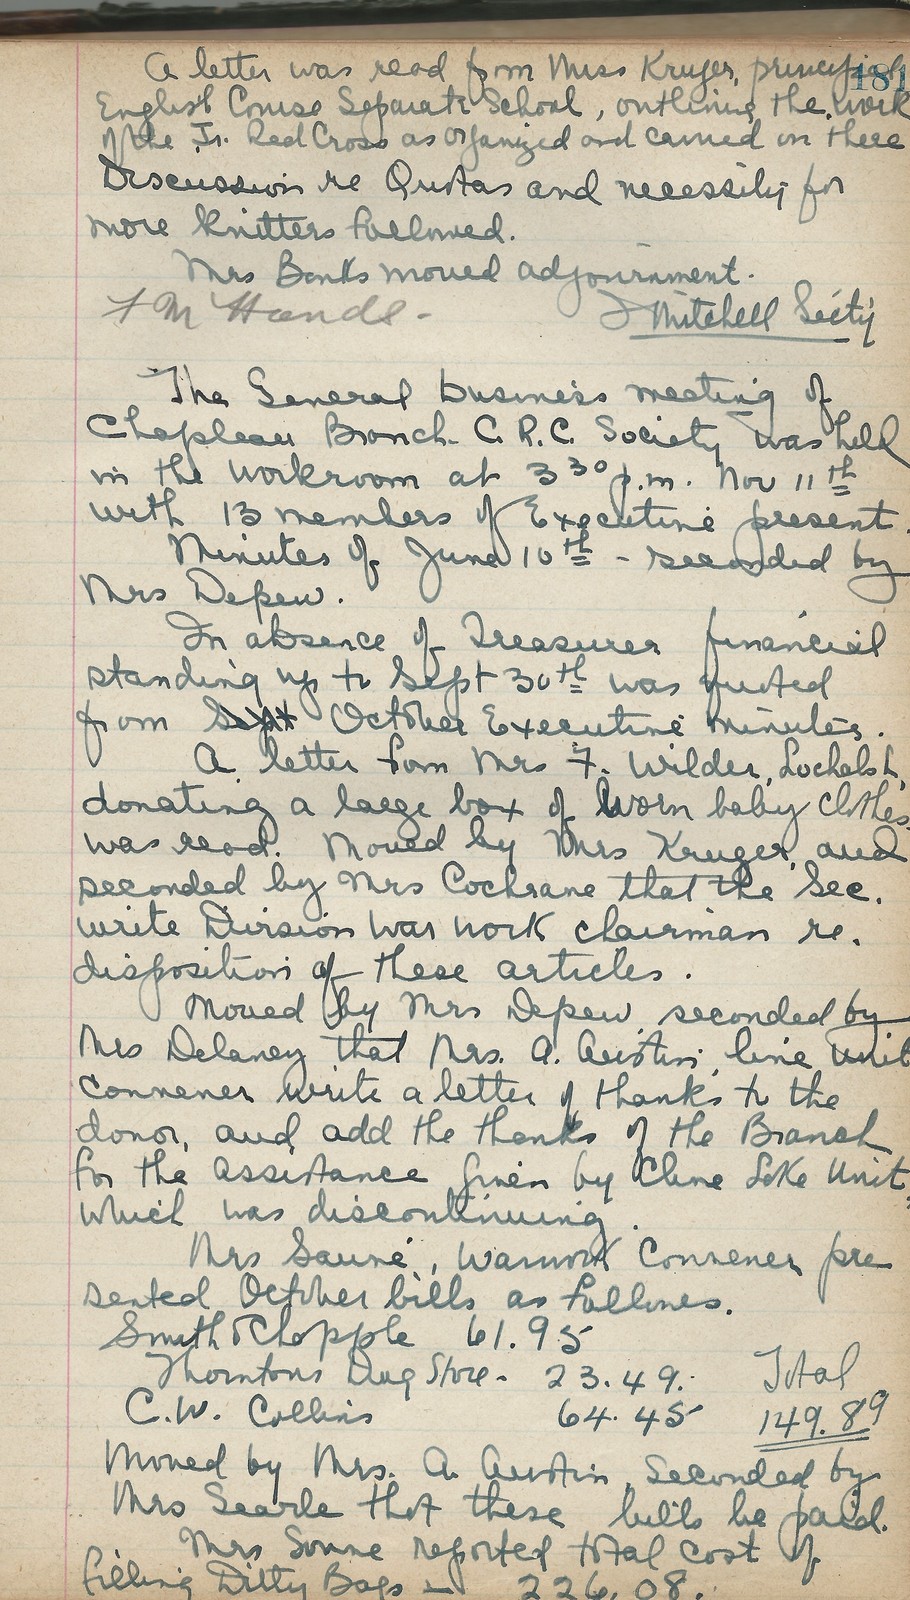 181
A letter was read from Miss Kruger, principal
English Course Separate School, outlining the work
of the Jr. Red Cross as organized and carried on there
Discussion re Quotas and necessity for
more knitters followed.
Mrs Banks moved adjournment.
F M Hands - J Mitchell Sec'ty
The General business meeting of
Chapleau Branch C.R.C. Society was held
in the workroom at 3 30 p.m. Nov 11th
with 13 members of Executive present.
Minutes of June 10th - seconded by
Mrs Depew.
In absence of Treasurer financial
standing up to Sept 30th was quoted
from Sept October Executive minutes.
A letter from Mrs F. Wilder, Lochalsh,
donating a large box of worn baby clothes
was read. Moved by Mrs Kruger, and
seconded by Mrs Cochrane that the Sec.
write Division War work chairman re.
disposition of these articles.
Moved by Mrs Depew, seconded by
Mrs Delaney that Mrs. A. Austin, line Unit
convener write a letter of thanks to the
donor, and add the thanks of the Branch
for the assistance given by Cline Lake Unit,
which was discontinuing.
Mrs Sauvé, Warwork Convener pre
sented October bills as follows.
Smith & Chapple 61.95
Thorntons Drug Store - 23.49. Total
C.W. Collins 64.45 149.89
Moved by Mrs. A. Austin, seconded by
Mrs Searle that these bills be paid.
Mrs reported total cost of
filling Ditty Bags - 226.08.